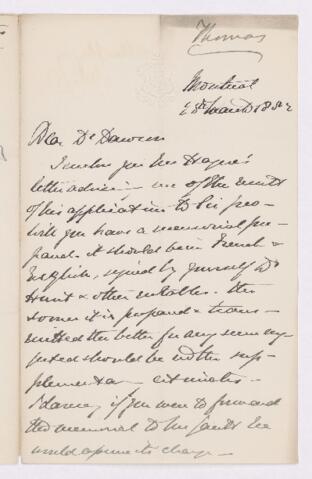 Thomas
Montreal
Dear Dr Dawson
I enclose you Mr Hague's
letter advising me of the result
of his application to Sir
will you have a memorial pre-
pared. it should be in French &
English, signed by yourself Dr
Hunt & other notables. the
sooner it is prepared & trans-
mitted the better for any
should be in the sup-
plementary estimates -
I dare say if you were to forward
the memorial to Mr he
would assume its charge -